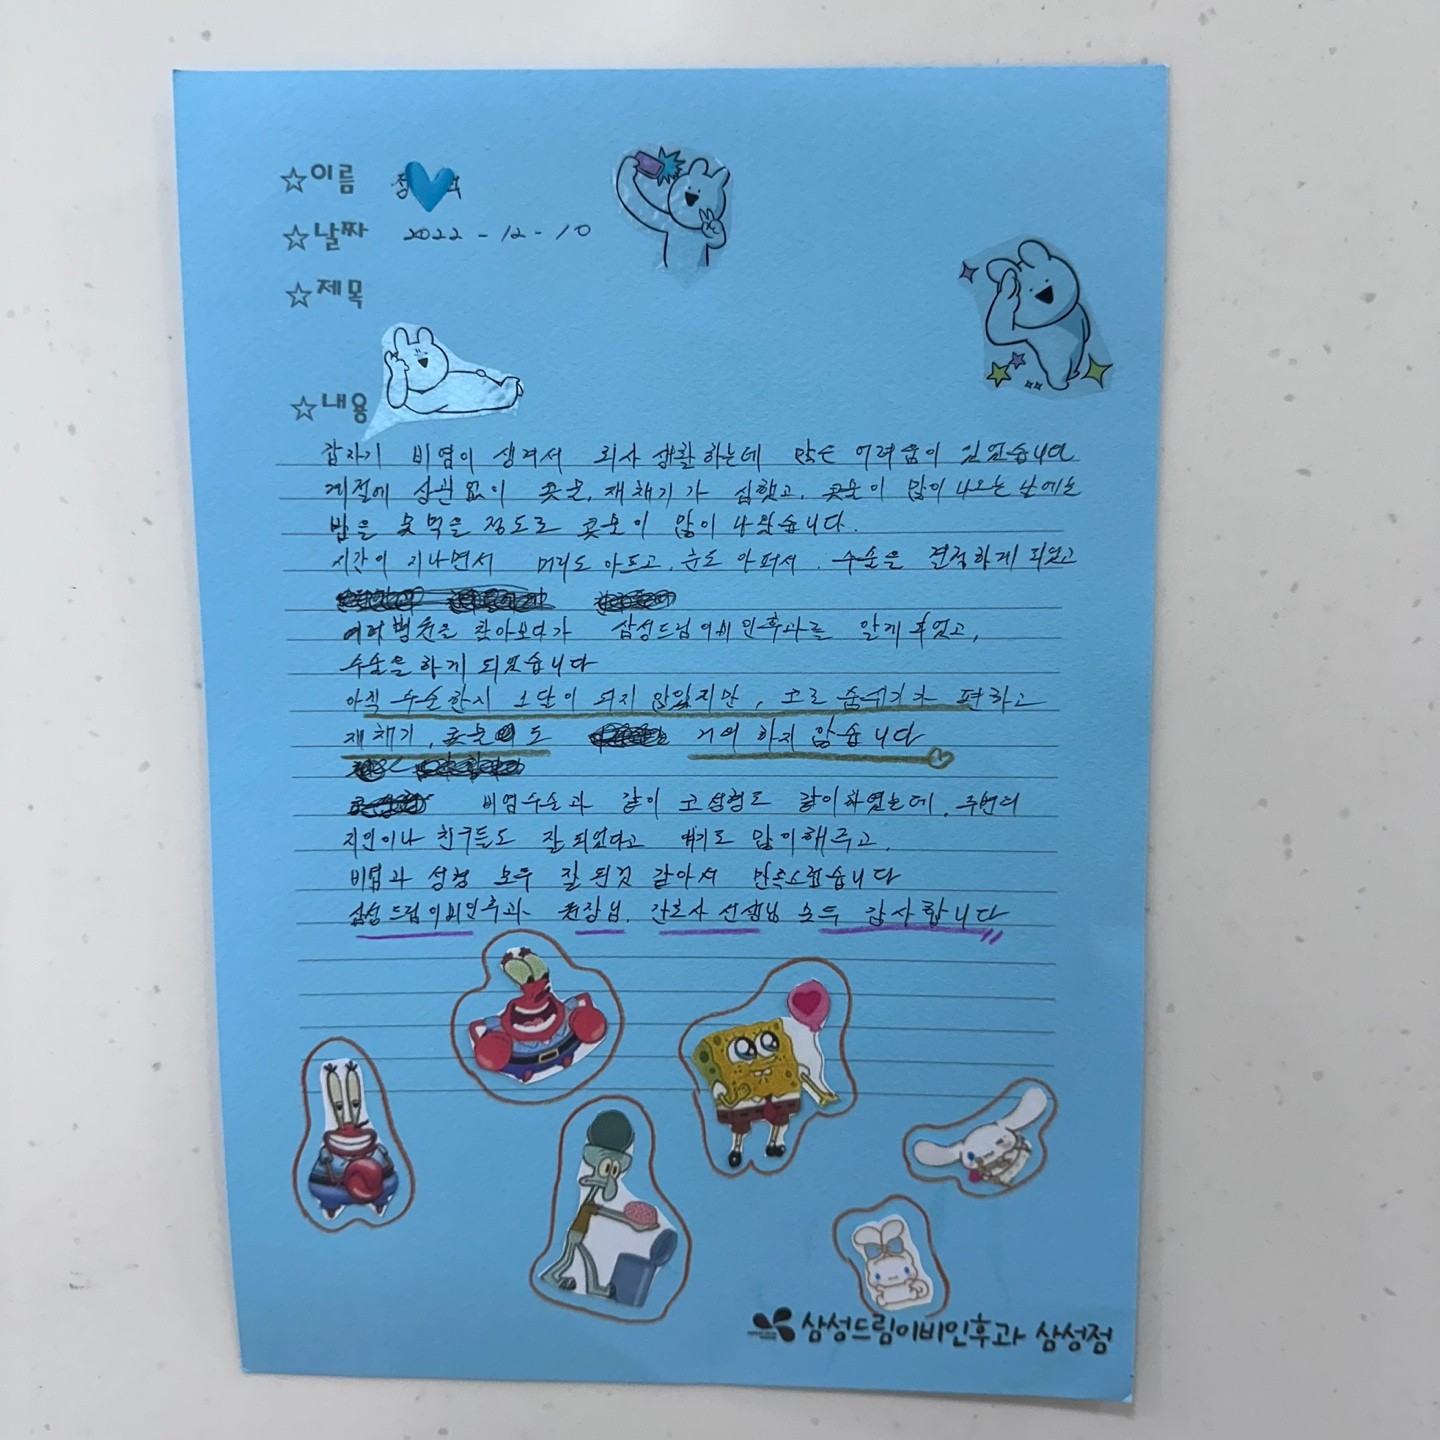 ☆이름
☆날짜 2022-12-10
☆제목
☆내용
갑자기 비염이 생겨서 회사 생활하는데 많은 어려움이 있었습니다
계절에 상관없이 콧물, 재채기가 심했고, 콧물이 많이 나오는 날에는
밥을 못먹을 정도로 콧물이 많이 나왔습니다.
시간이 지나면서 머리도 아프고, 눈도 아퍼서, 수술을 결정하게 되었고
여러 병원을 찾아보다가 삼성드림이비인후과를 알게 되었고,
수술을 하게 되었습니다
아직 수술한지 1달이 되지 않았지만, 코로 숨쉬기가 편하고
재채기, 콧물도 거의 하지 않습니다
비염수술과 같이 코성형도 같이하였는데, 주변에
지인이나 친구들도 잘 되었다고 얘기도 많이해주고,
비염과 성형 모두 잘 된것 같아서 만족스럽습니다
삼성드림이비인후과 원장님, 간호사 선생님 모두 감사합니다
삼성드림이비인후과 삼성점